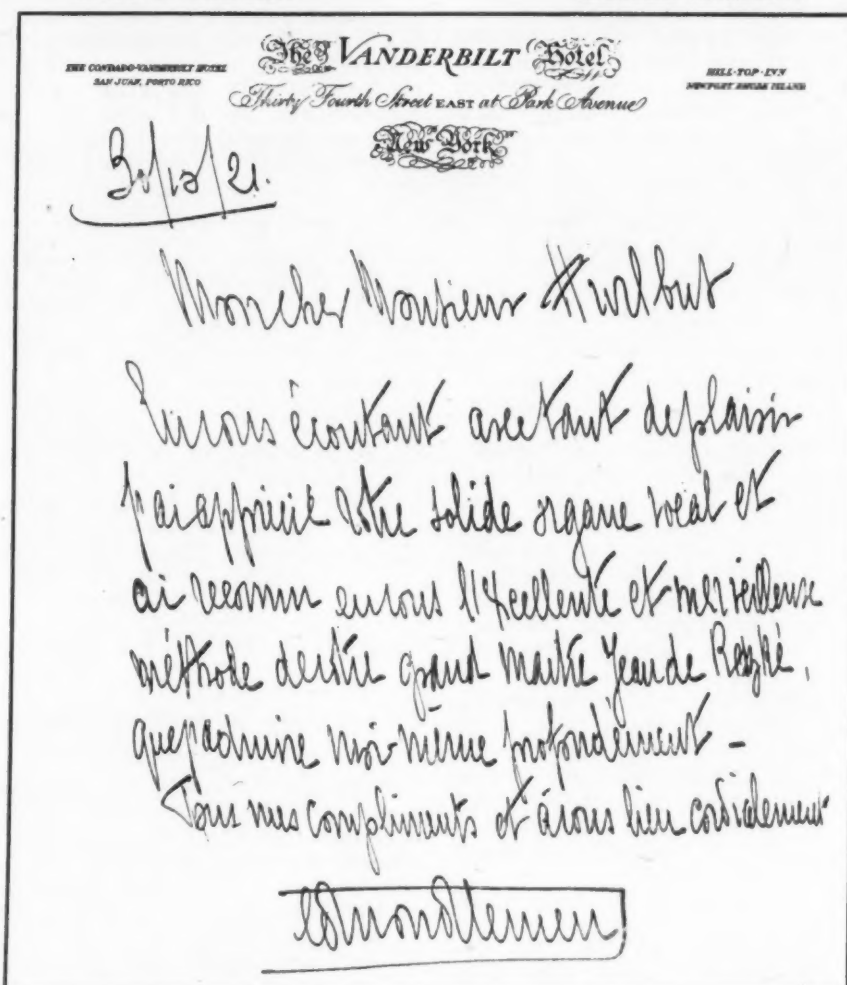 THE CONDADO-VANDERBILT HOTEL
SAN JUAN, PORTO RICO
The VANDERBILT Hotel
Thirty Fourth Street EAST at Park Avenue
New York
HILL-TOP-INN
NEWPORT RHODE ISLAND
30/12/21.
Mon cher Monsieur Hurlbut
En vous écoutant avec tant de plaisir
j'ai apprécié votre solide organe vocal et
ai reconnu en vous l'excellente et merveilleuse
méthode de votre grand maître Jean de Reszké,
que j'admire moi-même profondément -
Tous mes compliments et à vous bien cordialement